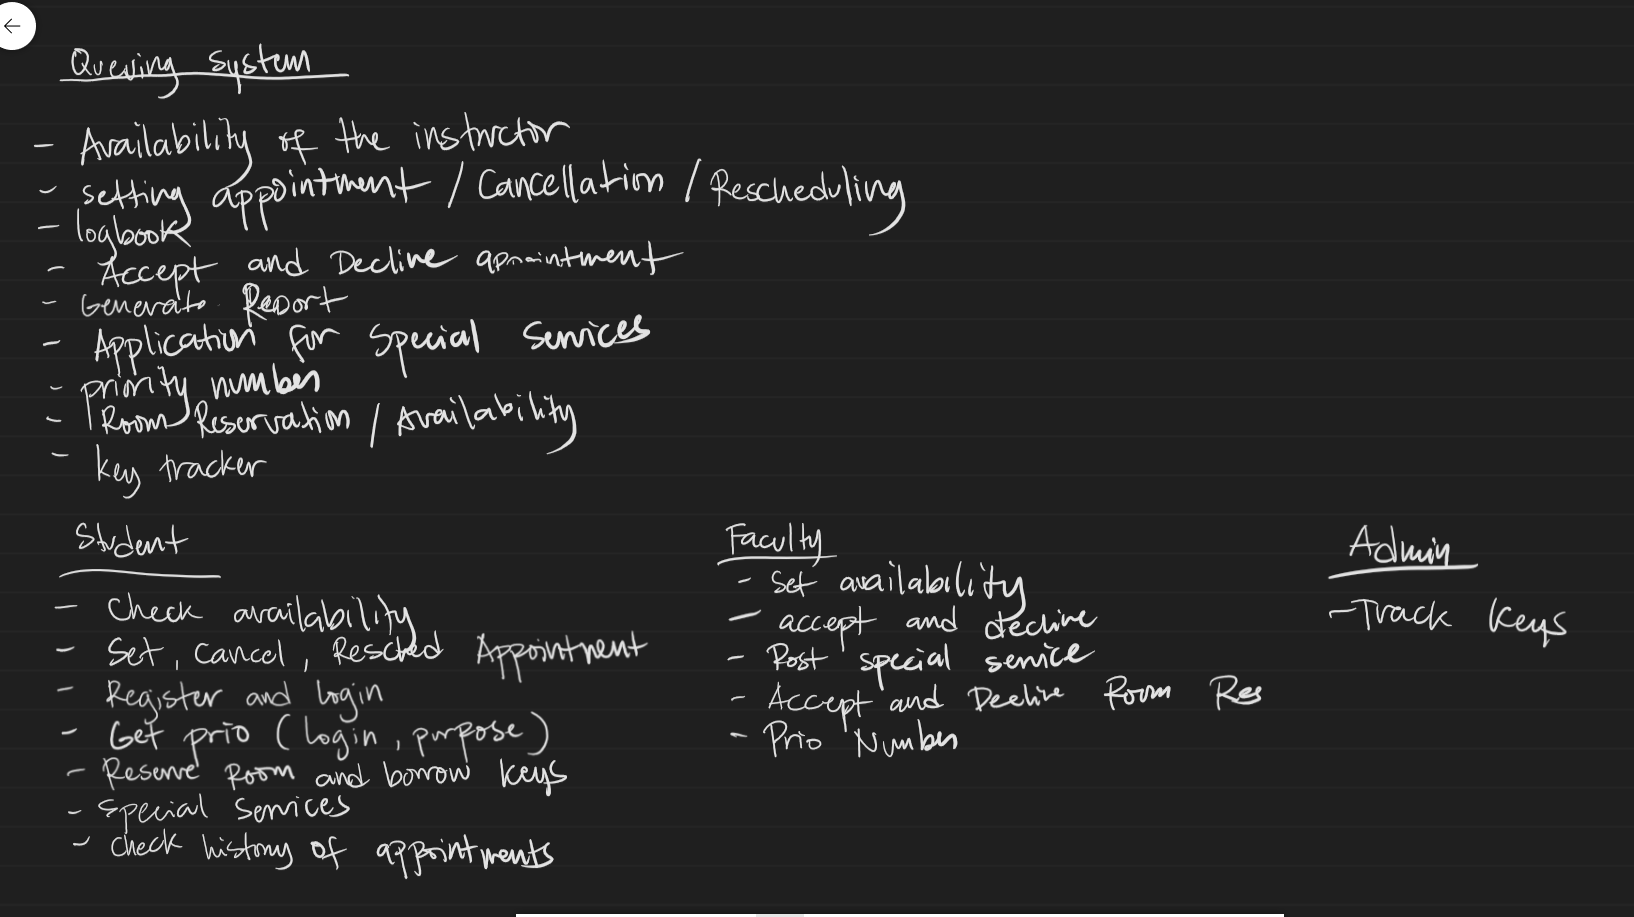 Queuing System
- Availability of the instructor
- setting appointment / Cancellation / Rescheduling
- logbook
- Accept and Decline appointment
- Generate Report
- Application for Special Services
- priority number
- Room Reservation / Availability
- key tracker
Student
- Check availability
- Set, Cancel, Resched Appointment
- Register and login
- Get prio (login, purpose)
- Reserve Room and borrow keys
- special services
- check history of appointments
Faculty
- Set availability
- accept and decline
- Post special service
- Accept and Decline Room Res
- Prio Number
Admin
- Track keys